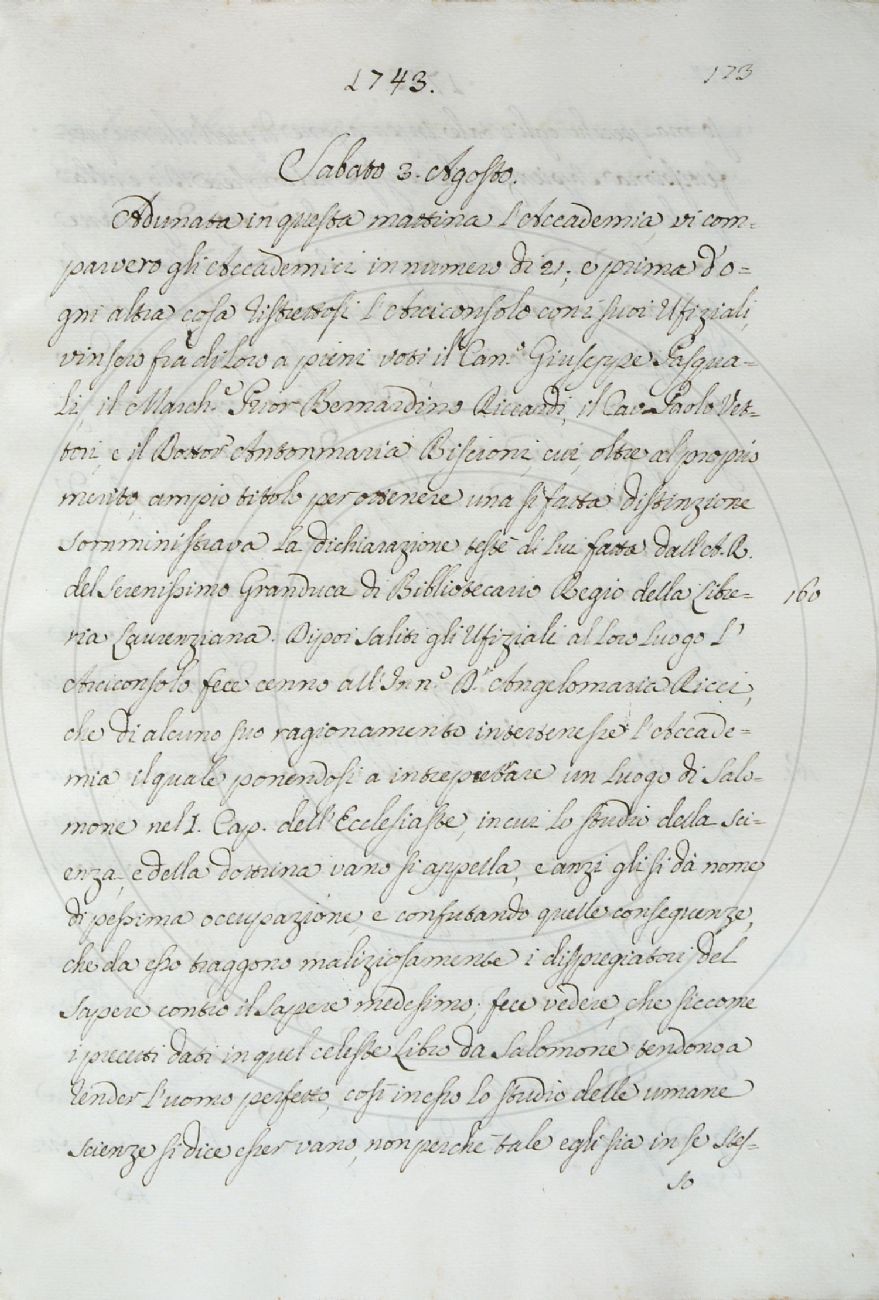 1743.
173
Sabato 3. Agosto.
Adunata in questa mattina l'Accademia, vi com-
parvero gli Accademici in numero di 21; e prima d'o-
gni altra cosa ristrettosi l'Arciconsolo con i suoi Ufiziali,
vinsero frà di loro a pieni voti il Can.º Giuseppe Pasqua-
li, il March.e Prior Bernardino Riccardi, il Cav. Paolo Vet-
tori, e il Dottor Antonmaria Biscioni, cui, oltre al proprio
merito, ampio titolo per ottenere una sì fatta distinzione
somministrava la dichiarazione testè di lui fatta dall'A. R.
del Serenissimo Granduca di Bibliotecario Regio della Libre-
160
ria Laurenziana. Dipoi saliti gli Ufiziali al loro luogo l'
Arciconsolo fece cenno all'Inn.º D.r Angelomaria Ricci,
che di alcuno suo ragionamento intertenesse l'Accade-
mia il quale ponendosi a intrepettare un luogo di Salo-
mone nel I. Cap. dell'Ecclesiaste, in cui lo studio della sci-
enza, e della dottrina vano si appella, e anzi gli si dà nome
di pessima occupazione, e confutando quelle conseguenze,
che da esso traggono maliziosamente i dispregiatori del
sapere contro il sapere medesimo; fece vedere, che siccome
i precetti dati in quel celeste Libro da Salomone tendono a
render l'uomo perfetto, così in esso lo studio delle umane
scienze si dice esser vano, non perchè tale egli sia in se stes-
so